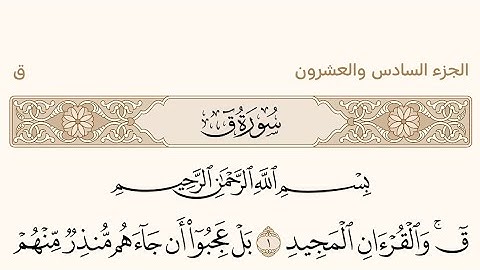 الجزء السادس والعشرون ق
سُورَةُ قٓ
بِسْمِ ٱللَّهِ ٱلرَّحْمَٰنِ ٱلرَّحِيمِ
قٓ ۚ وَٱلْقُرْءَانِ ٱلْمَجِيدِ ١ بَلْ عَجِبُوٓا۟ أَن جَآءَهُم مُّنذِرٌ مِّنْهُمْ